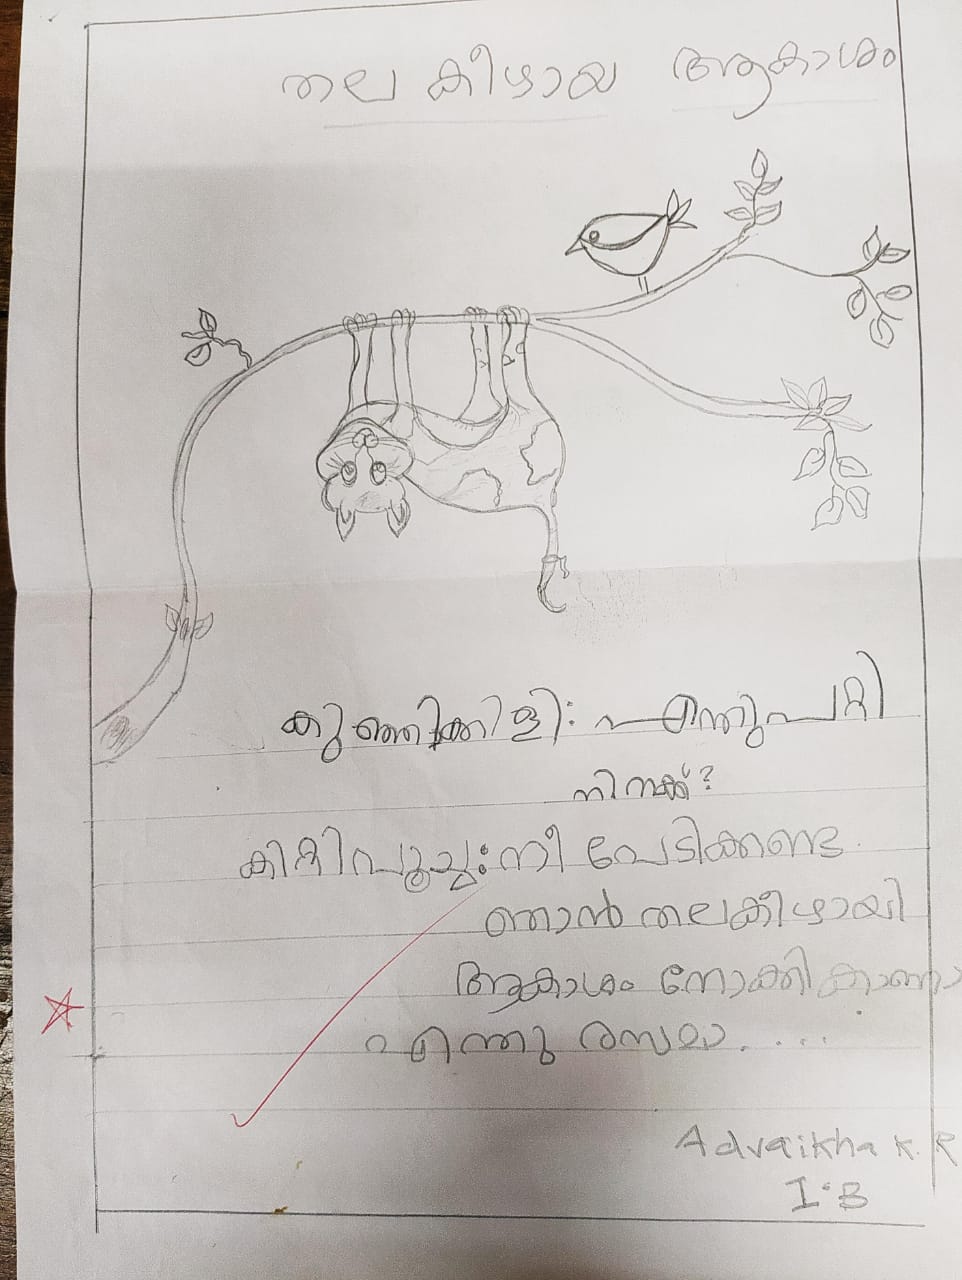 തല കീഴായ ആകാശം
കുഞ്ഞിക്കിളി: എന്തുപറ്റി
നിനക്ക്?
കിറ്റിപൂച്ച: നീ പേടിക്കണ്ട
ഞാൻ തലകീഴായി
ആകാശം നോക്കി കാണാ
എന്തു രസമാ.....
Advaikha K. R
I.B